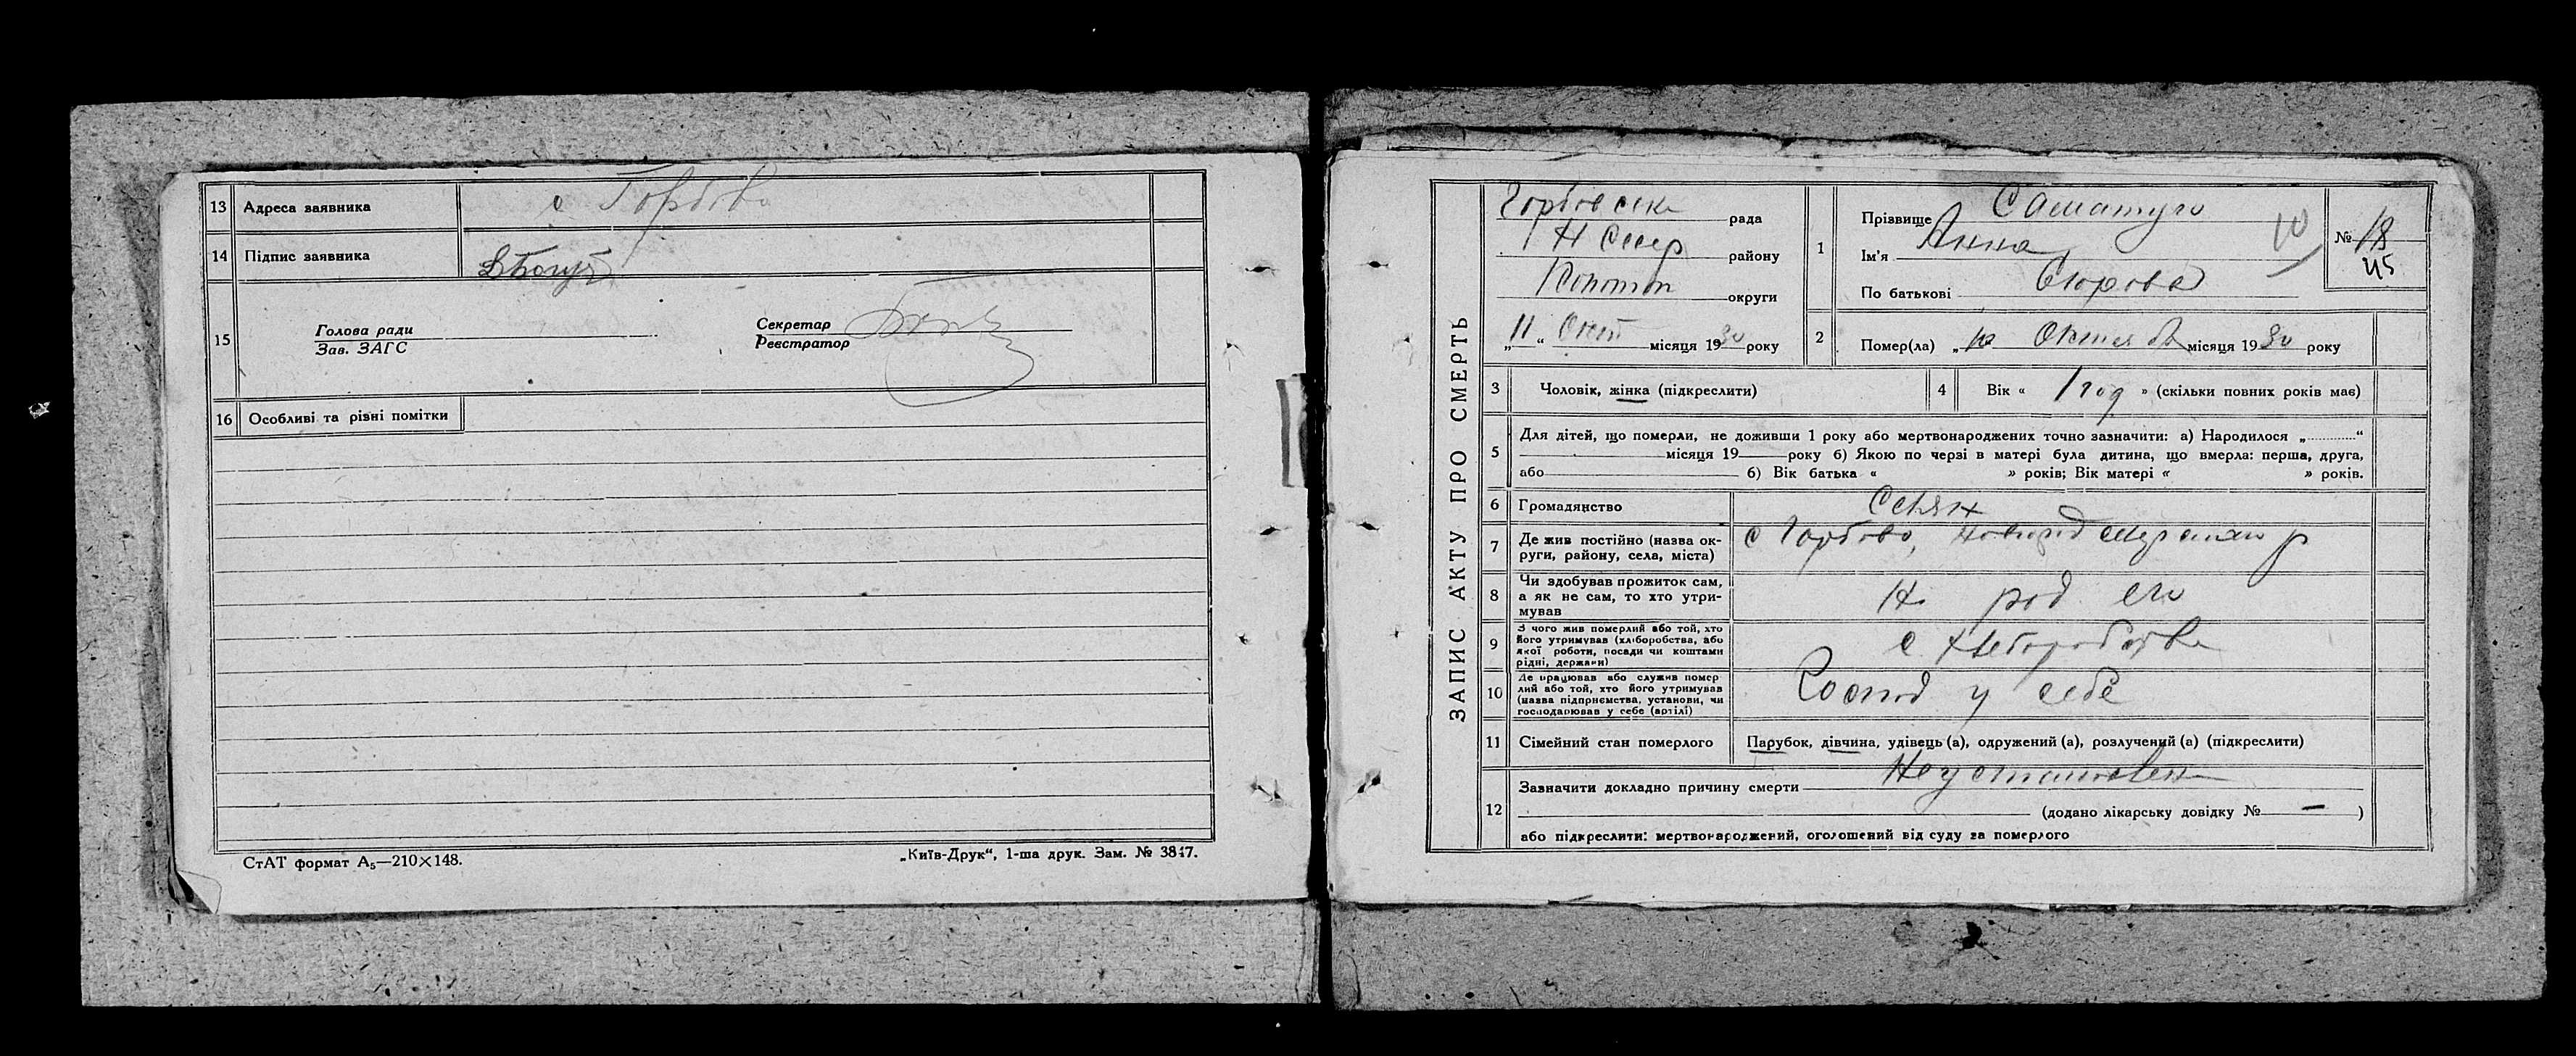 13 Адреса заявника с Горбово
14 Підпис заявника
15 Голова ради
Зав. ЗАГС
Секретар
Реєстратор
16 Особливі та різні помітки
СтАТ формат А₅—210×148.
„Київ-Друк“, 1-ша друк. Зам. № 3847.
ЗАПИС АКТУ ПРО СМЕРТЬ
Горбовск рада
Н Север району
Конотоп округи
„11“ Окт місяця 1930 року
1 Прізвище
Ім'я Анна
По батькові
10
№ 18
45
2 Помер(ла) „10 Октября місяця 1930 року
3 Чоловік, жінка (підкреслити)
4 Вік « 1 год » (скільки повних років має)
5 Для дітей, що померли, не доживши 1 року або мертвонароджених точно зазначити: а) Народилося „............“
місяця 19 року б) Якою по черзі в матері була дитина, що вмерла: перша, друга,
або б) Вік батька « » років; Вік матері « » років.
6 Громадянство
7 Де жив постійно (назва ок-
руги, району, села, міста) с Горбово, р
8 Чи здобував прожиток сам,
а як не сам, то хто утри-
мував
9 З чого жив померлий або той, хто
його утримував (хліборобства, або
якої роботи, посади чи коштами
рідні, держави) с Хлеборобства
10 Де працював або служив помер
лий або той, хто його утримував
(назва підприємства, установи, чи
господарював у себе (артілі) Господ у себе
11 Сімейний стан померлого Парубок, дівчина, удівець (а), одружений (а), розлучений (а) (підкреслити)
12 Зазначити докладно причину смерти Неустановлен
(додано лікарську довідку № — )
або підкреслити: мертвонароджений, оголошений від суду за померлого